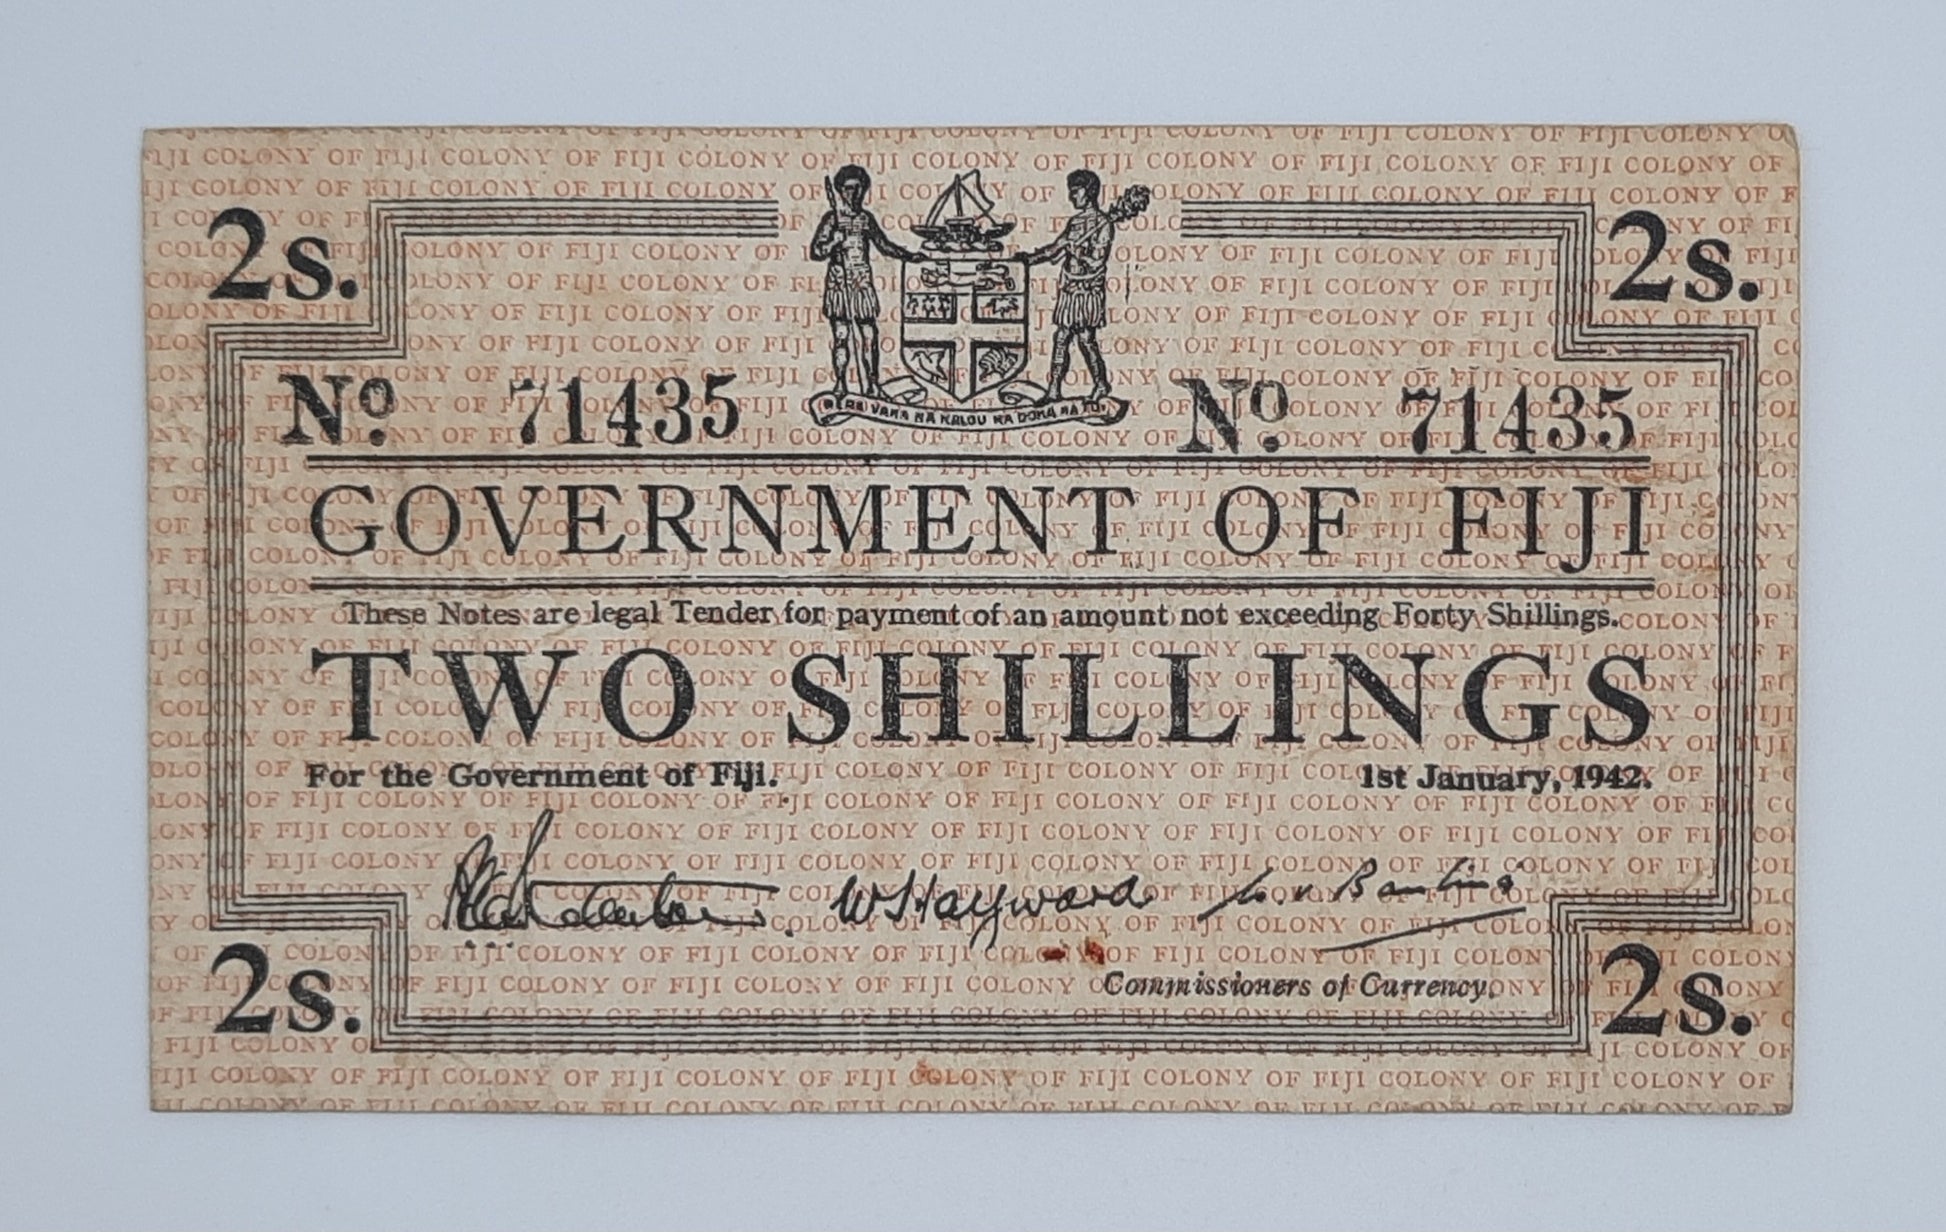 2s. 2s.
Nº 71435 Nº 71435
RERE VAKA NA KALOU KA DOKA NA TUI
GOVERNMENT OF FIJI
These Notes are legal Tender for payment of an amount not exceeding Forty Shillings.
TWO SHILLINGS
For the Government of Fiji. 1st January, 1942.
W S Hayward
Commissioners of Currency.
2s. 2s.
COLONY OF FIJI